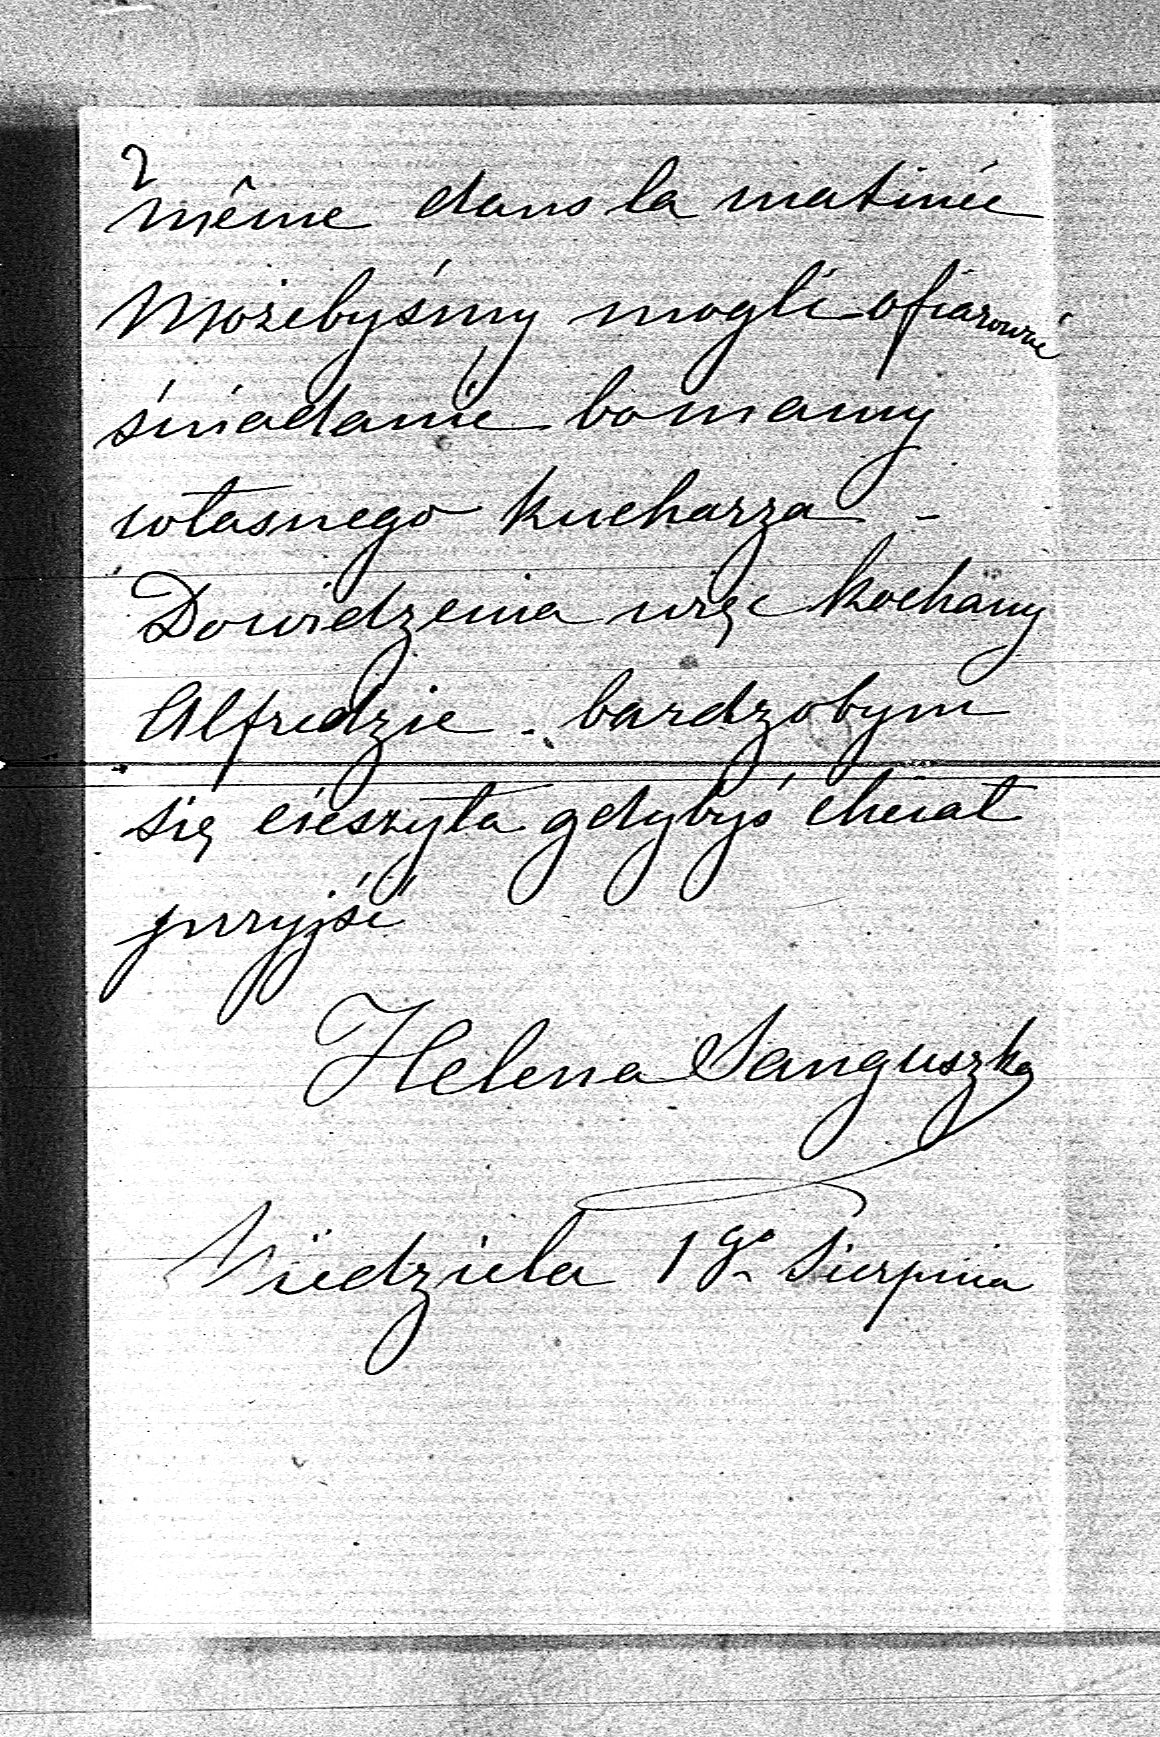 2
même dans la matinée
Możebyśmy mogli ofiarować
śniadanie bo mamy
własnego kucharza -
Dowidzenia więc kochany
Alfredzie - bardzobym
się cieszyła gdybyś chciał
przyjść
Helena Sanguszko
Niedziela 1go Sierpnia